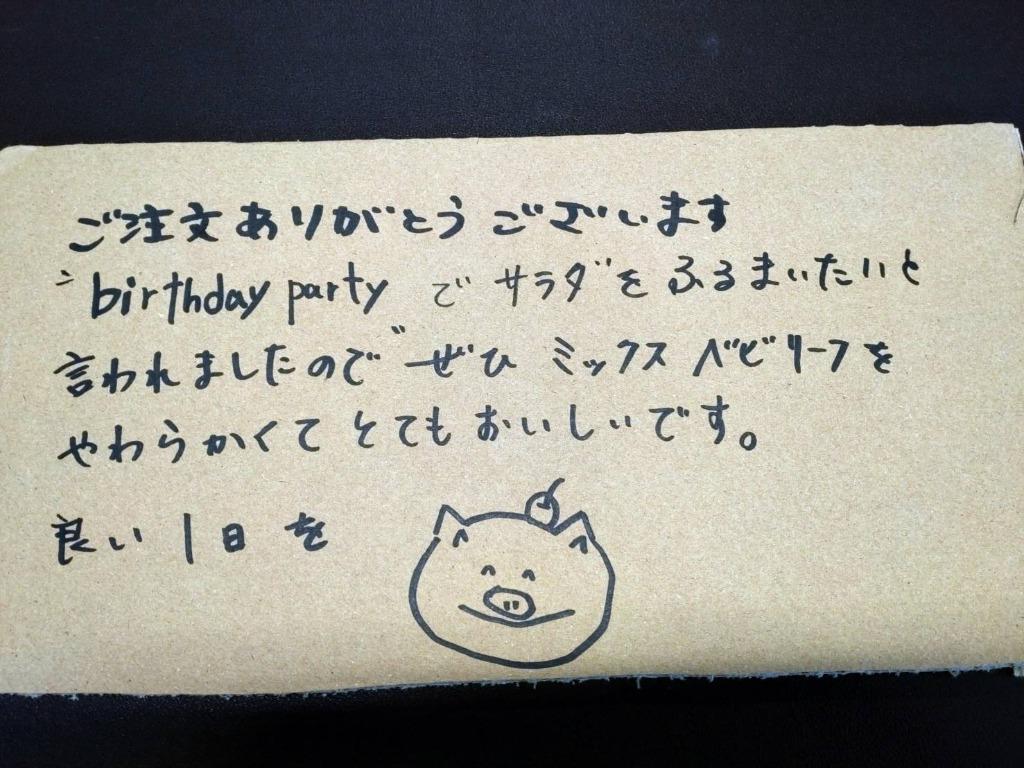 ご注文ありがとうございます
birthday party でサラダをふるまいたいと
言われましたのでぜひ ミックスベビリーフを
やわらかくて とてもおいしいです。
良い1日を